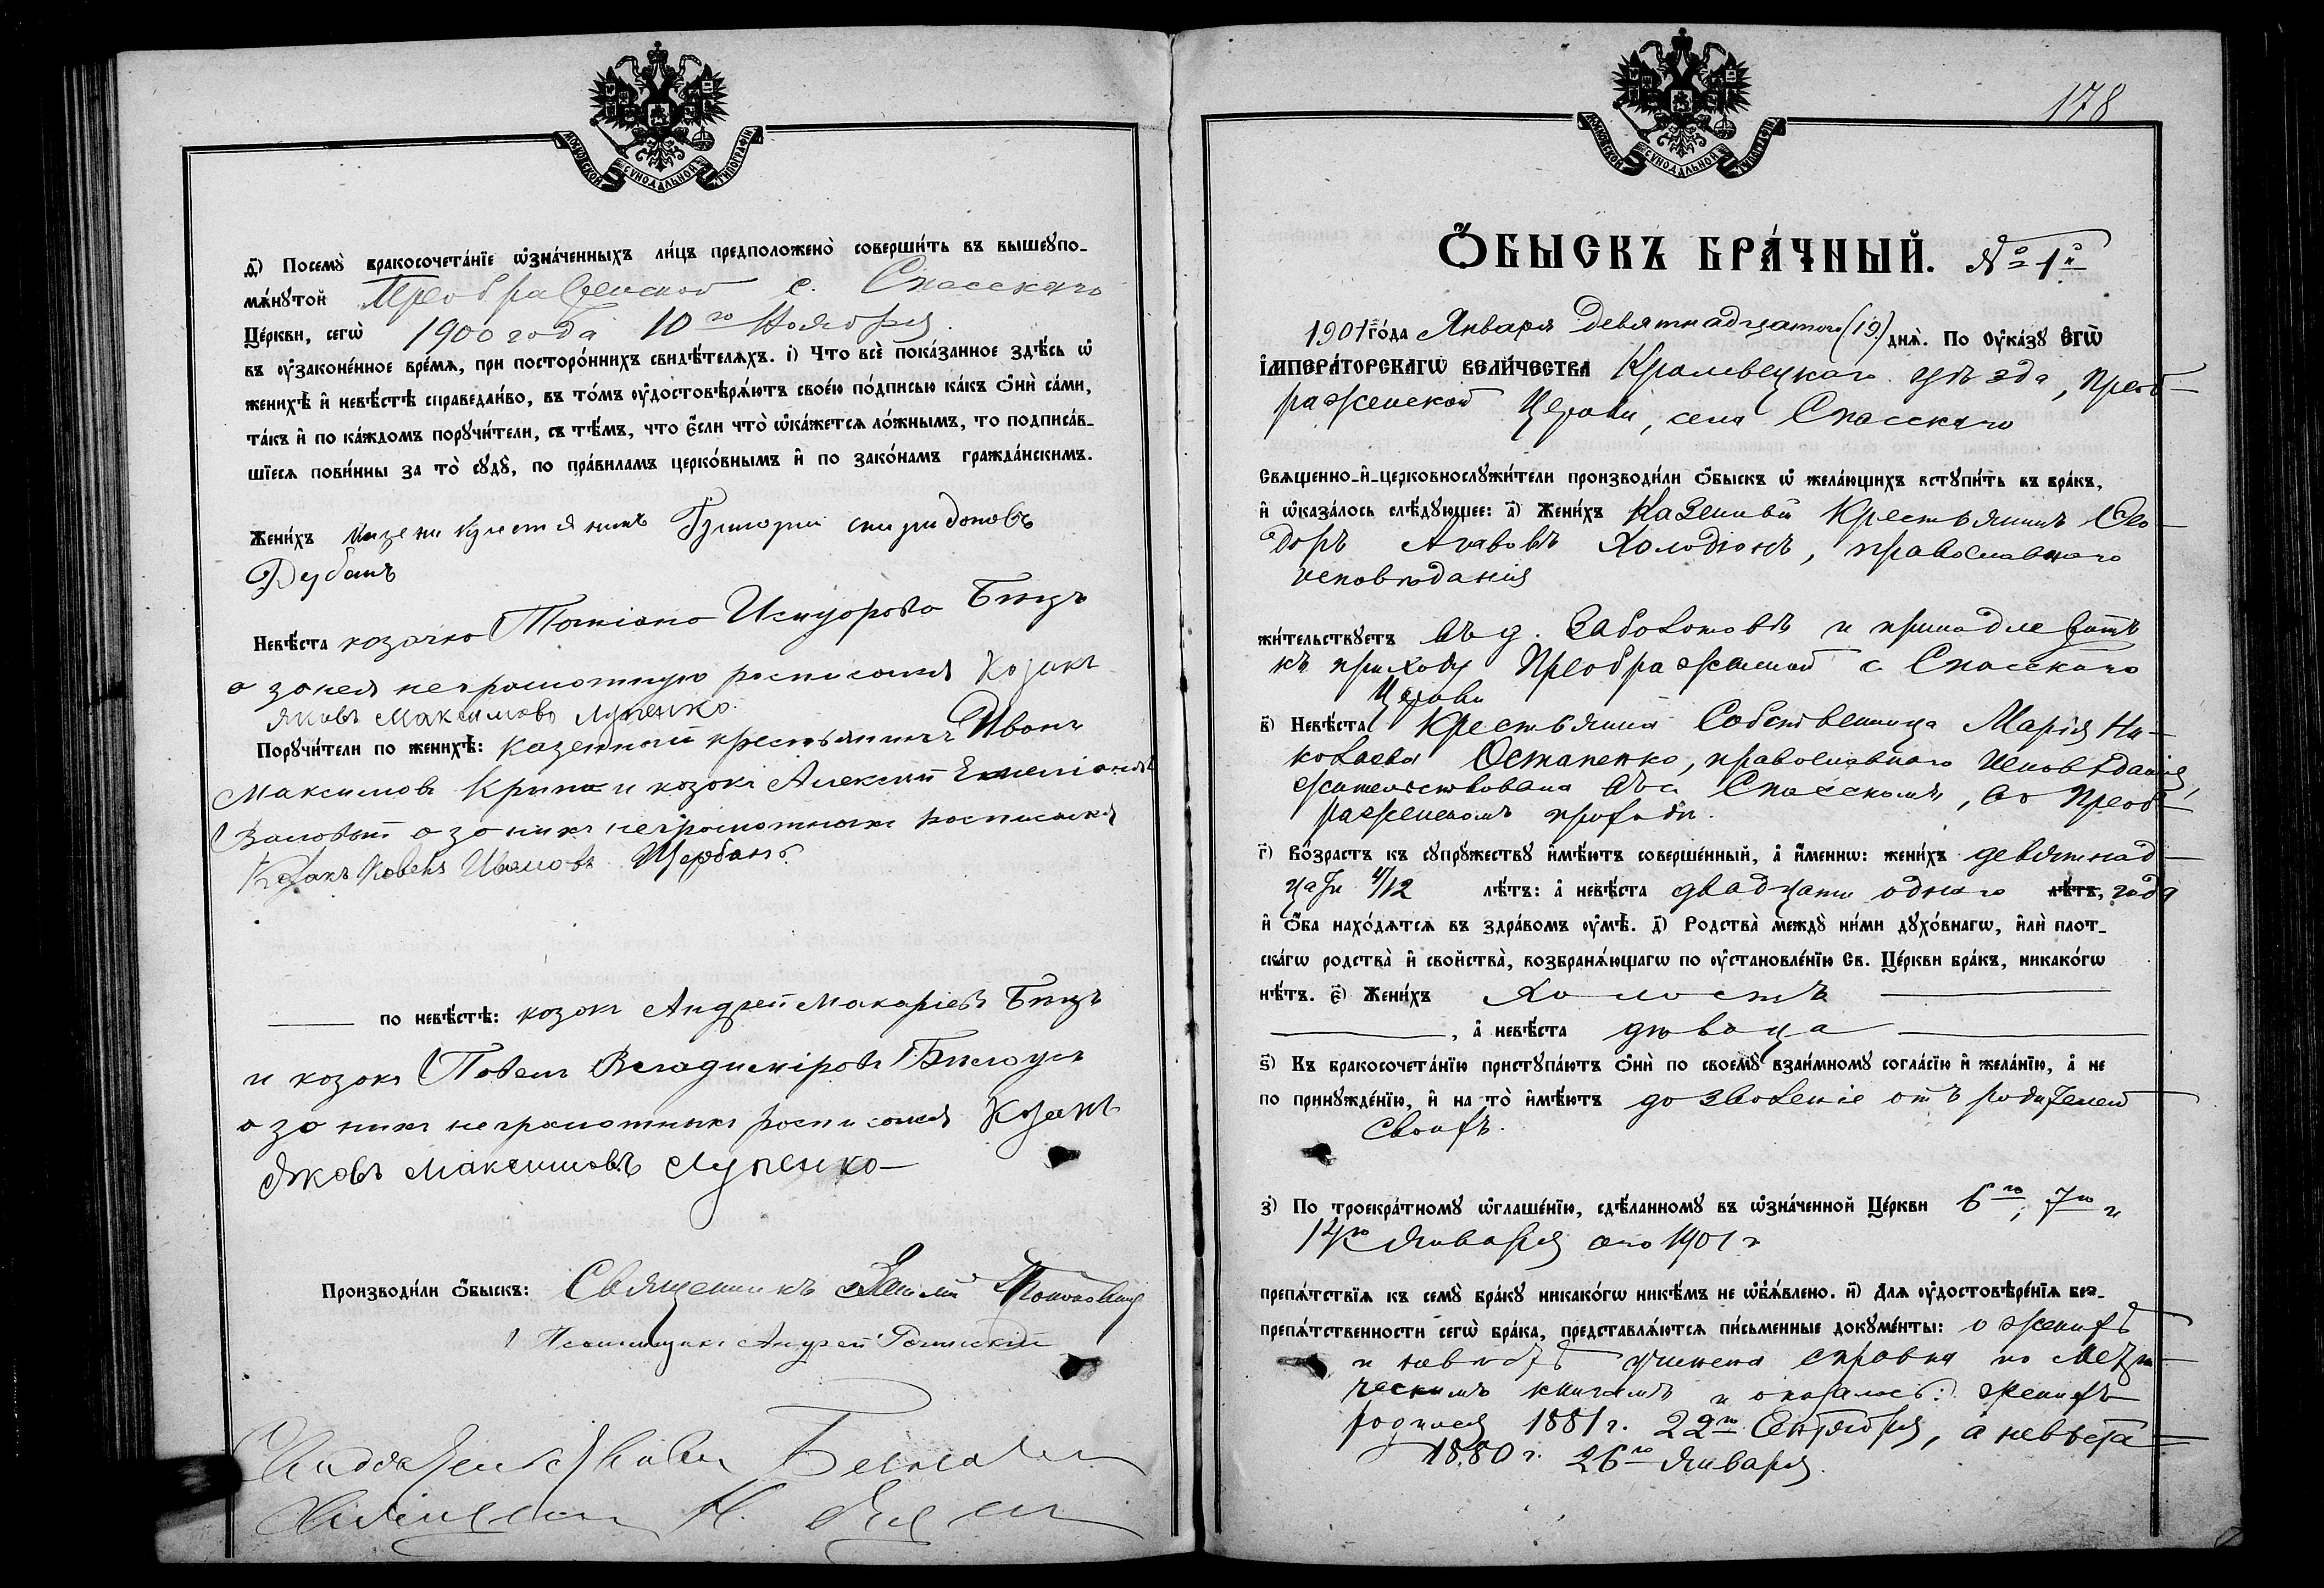 МОСКОВСКОЙ СУНОДАЛЬНОЙ ТИПОГРАФІИ
д҃) Посемꙋ̀ бракосочета́нїе ѡ҆зна́ченныхъ ли́цъ предположено̀ соверши́ть въ вышеꙋпо-
мѧ́нꙋтой Преображенской с. Спасскаго
Це́ркви, сегѡ̀ 1900 года 10го Ноября
въ ᲂу҆законе́нное вре́мѧ, при посторо́ннихъ свидѣ́телѧхъ. і҃) Что̀ всѐ пока́занное здѣ́сь ѡ҆
женихѣ̀ и҆ невѣ́стѣ справедли́во, въ то́мъ ᲂу҆достовѣрѧ́ютъ свое́ю по́дписью ка́къ ѻ҆нѝ са́ми,
та́къ и҆ по ка́ждомъ порꙋчи́тели, съ тѣ́мъ, что є҆́сли что̀ ѡ҆ка́жетсѧ ло́жнымъ, то подписа́в-
шїесѧ пови́нны за то̀ сꙋдꙋ̀, по пра́виламъ церко́внымъ и҆ по зако́намъ гражда́нскимъ.
Жени́хъ крестянинъ Григорій спиридоновъ
Дубанъ
Невѣ́ста козачка Татіана Исидорова
а за нея неграмотную росписался Козакъ
Яковъ Максимовъ Лупенко.
Порꙋчи́тели по женихѣ̀: казенный крестьянинъ Иванъ
Максимовъ и козакъ Алексѣй Емеліановъ
а за нихъ неграмотныхъ росписался
Козакъ Ивановъ Щербакъ.
по невѣ́стѣ: козакъ Андрей Макаріевъ
и козакъ Павелъ Владиміровъ Бѣлоусъ
а за нихъ неграмотныхъ росписался Козакъ
Яковъ Максимовъ Лупенко
Производи́ли ѻ҆́быскъ: Священникъ
Псаломщикъ Андрей
178
МОСКОВСКОЙ СУНОДАЛЬНОЙ ТИПОГРАФІИ
Ѻ҆́БЫСКЪ БРА́ЧНЫЙ. № 1й
1901 го́да Января девятнадцатаго (19) днѧ̀. По ᲂу҆ка́зꙋ Є҆гѡ̀
І҆мпера́торскагѡ вели́чества Кролевецкаго уѣзда, Преоб-
раженской Церкви, села Спасскаго
Свѧще́нно-и҆-церковнослꙋжи́тели производи́ли ѻ҆́быскъ ѡ҆ жела́ющихъ встꙋпи́ть въ бра́къ,
и҆ ѡ҆каза́лось слѣ́дꙋющее: а҃) Жени́хъ Казенный Крестьянинъ Ѳео-
доръ Савовъ Холодюкъ, православнаго
исповѣданія
жи́тельствꙋетъ въ д. Заболотовѣ и принадлежитъ
къ приходу Преображенской с Спасскаго
Церкви
в҃) Невѣ́ста Крестьянка Собственница Марія Ни-
колаева Остапенко, православнаго исповѣданія,
жительствовала въ с Спасскомъ, въ Преоб-
раженскомъ приходѣ.
г҃) Во́зрастъ къ сꙋпрꙋ́жествꙋ и҆мѣ́ютъ соверше́нный, а҆ и҆́меннѡ: жени́хъ девятнад-
цати 4/12 лѣ́тъ: а҆ невѣ́ста двадцати одного лѣ́тъ, года
и҆ ѻ҆́ба нахо́дѧтсѧ въ здра́вомъ ᲂу҆мѣ̀. д҃) Родства̀ междꙋ̀ ни́ми дꙋхо́внагѡ, и҆лѝ пло́т-
скагѡ родства̀ и҆ свойства̀, возбранѧ́ющагѡ по ᲂу҆становле́нїю Св. Це́ркви бра́къ, никако́гѡ
нѣ́тъ. є҃) Жени́хъ Холостъ
, а҆ невѣ́ста дѣвица
ѕ҃) Къ бракосочета́нїю пристꙋпа́ютъ ѻ҆нѝ по своемꙋ̀ взаи́мномꙋ согла́сїю и҆ жела́нїю, а҆ не
по принꙋжде́нїю, и҆ на то̀ и҆мѣ́ютъ дозволеніе отъ родителей
своихъ.
з҃) По троекра́тномꙋ ѡ҆глаше́нїю, сдѣ́ланномꙋ въ ѡ҆зна́ченной Це́ркви 6го, 7го и
14го Января сего 1901 г
препѧ́тствїѧ къ семꙋ̀ бра́кꙋ никако́гѡ никѣ́мъ не ѡ҆б̾ѧ́влено. и҃) Длѧ ᲂу҆достовѣре́нїѧ без-
препѧ́тственности сегѡ̀ бра́ка, представлѧ́ютсѧ пи́сьменные докꙋме́нты: о женихѣ
и невѣстѣ учинена справка по метри-
ческимъ книгамъ и оказалось: женихъ
родился 1881 г. 22го Сентября, а невѣста
1880 г. 26го Января.